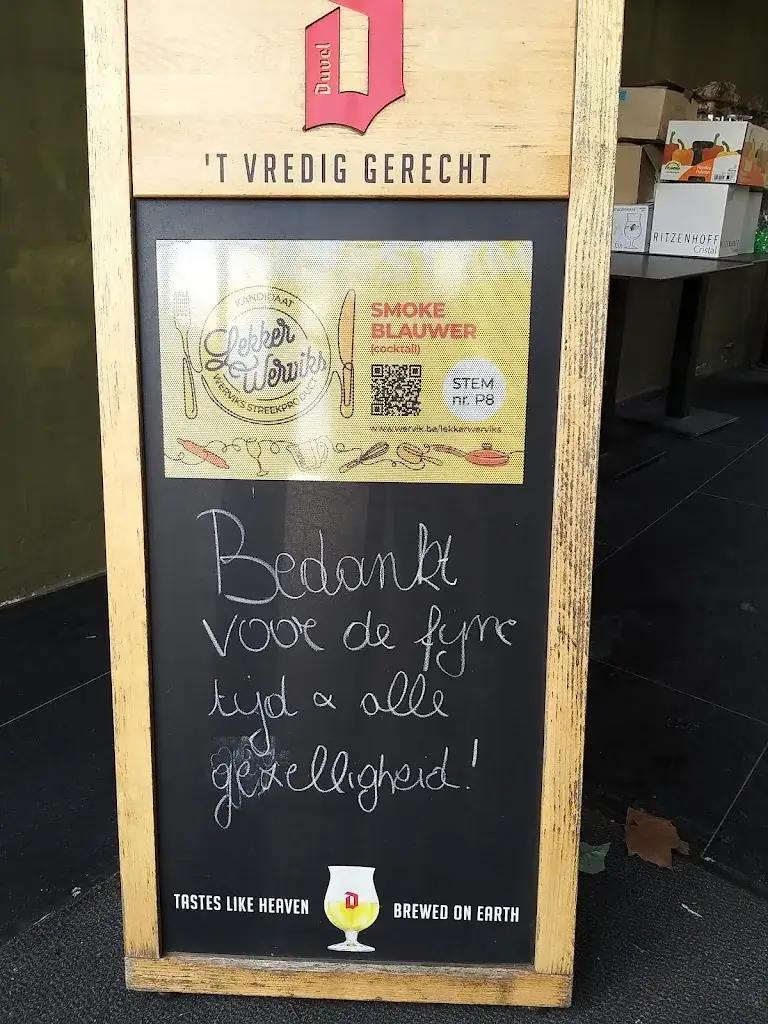 Duvel
'T VREDIG GERECHT
KANDIDAAT
Lekker
Werviks
WERVIKS STREEKPRODUCT
SMOKE
BLAUWER
(cocktail)
STEM
nr. P8
www.wervik.be/lekkerwerviks
Bedankt
voor de fijne
tijd & alle
gezelligheid!
TASTES LIKE HEAVEN
BREWED ON EARTH
RITZENHOFF
Cristal